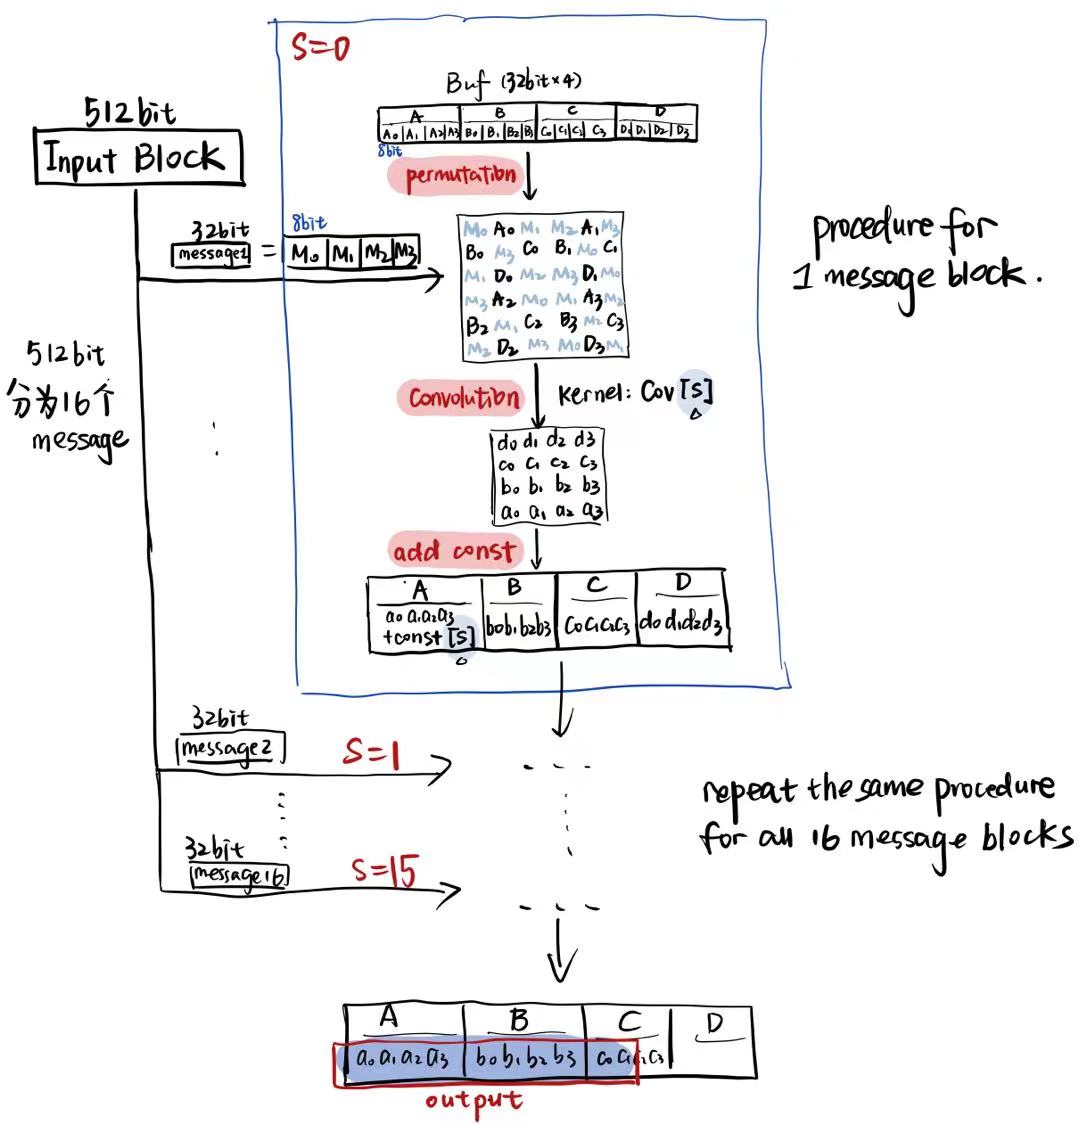 S=0
Buf (32bit×4)
A B C D
A0 A1 A2 A3 B0 B1 B2 B3 C0 C1 C2 C3 D0 D1 D2 D3
8bit
permutation
512bit
Input Block
32bit
message1 = M0 M1 M2 M3
8bit
M0 A0 M1 M2 A1 M3
B0 M3 C0 B1 M0 C1
M1 D0 M2 M3 D1 M0
M3 A2 M0 M1 A3 M2
B2 M1 C2 B3 M2 C3
M2 D2 M3 M0 D3 M1
procedure for
1 message block.
512bit
分为16个
message
Convolution
Kernel: Cov [S]
d0 d1 d2 d3
c0 c1 c2 c3
b0 b1 b2 b3
a0 a1 a2 a3
add const
A B C D
a0 a1 a2 a3
+const [S]
b0 b1 b2 b3
c0 c1 c2 c3
d0 d1 d2 d3
32bit
message2
S=1
32bit
message16
S=15
repeat the same procedure
for all 16 message blocks
A B C D
a0 a1 a2 a3 b0 b1 b2 b3 c0 c1 c2 c3
output